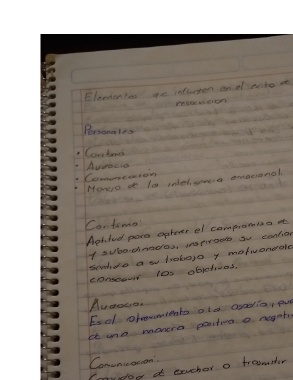 Elementos que influyen en el exito de
Personales
• Carisma
• Audacia
• Comunicación
• Manejo de la inteligencia emocional
Carisma:
Aptitud para obtener el compromiso de
y subordinados, inspirado su confian
sentido a su trabajo y motivandolos
conseguir los objetivos.
Audacia:
Es el atrevimiento o la osadía, pue
de una manera positiva o negati
Comunicación:
de escuchar o trasmitir